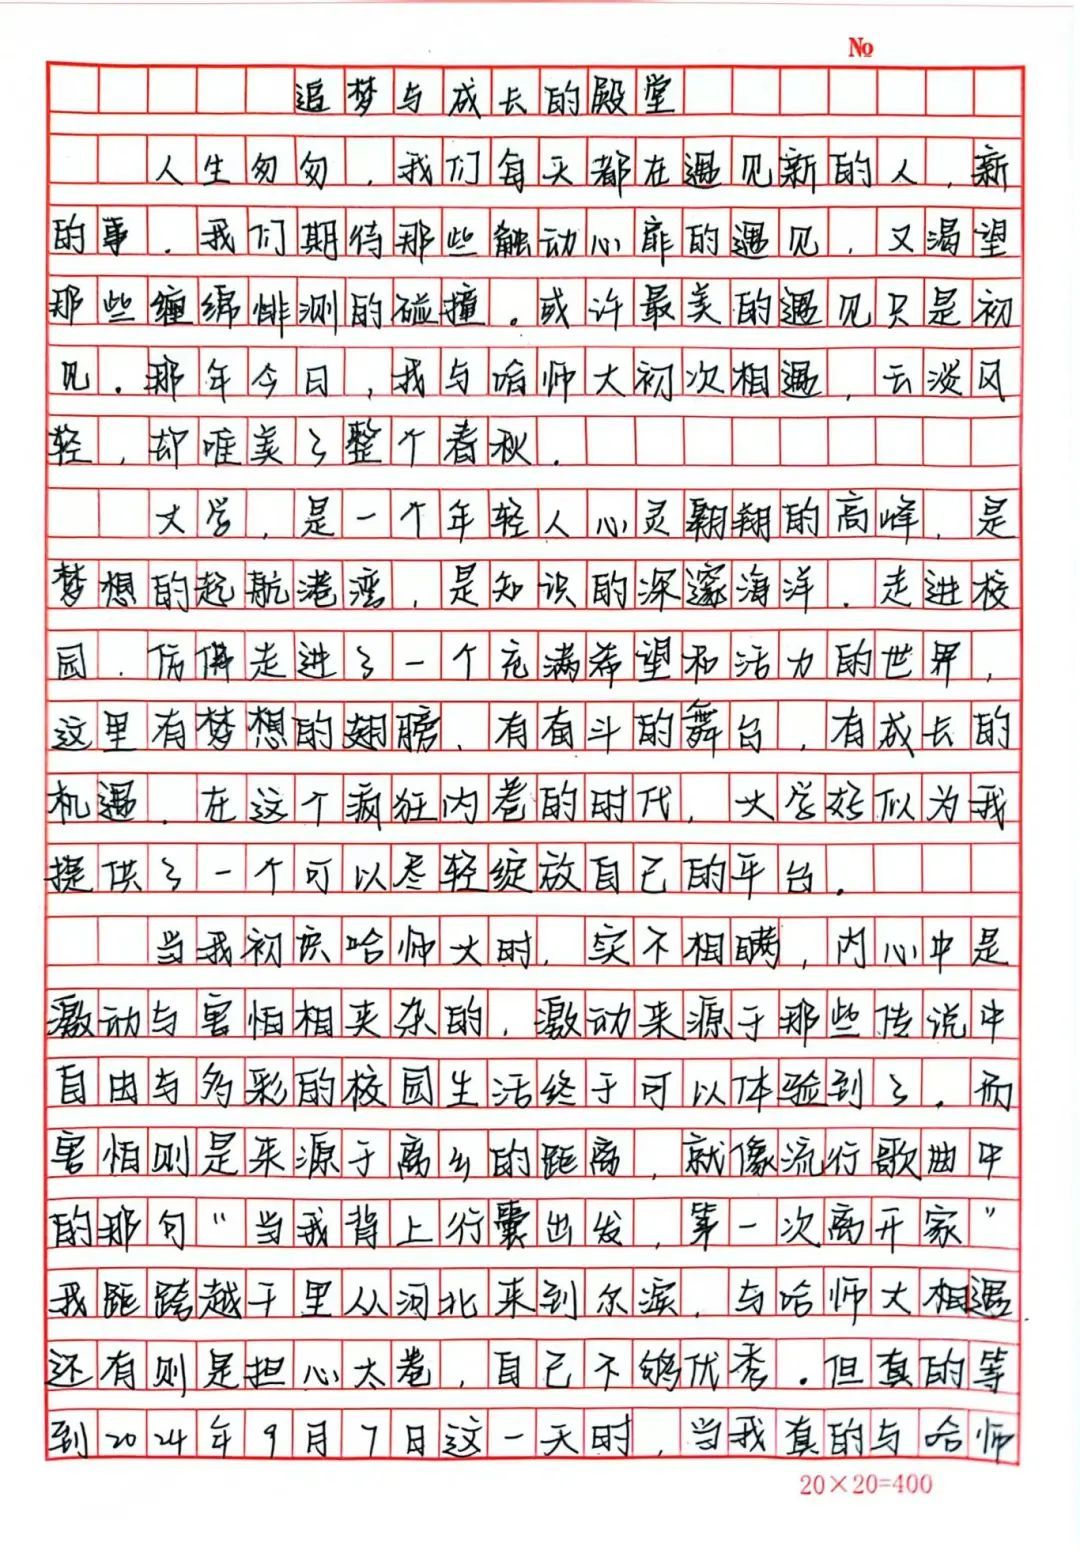 №
追梦与成长的殿堂
人生匆匆，我们每天都在遇见新的人，新
的事。我们期待那些触动心扉的遇见，又渴望
那些缠绵悱测的碰撞。或许最美的遇见只是初
见。那年今日，我与哈师大初次相遇，云淡风
轻，却唯美了整个春秋。
大学，是一个年轻人心灵翱翔的高峰，是
梦想的起航港湾，是知识的深邃海洋。走进校
园，仿佛走进了一个充满希望和活力的世界，
这里有梦想的翅膀、有奋斗的舞台，有成长的
机遇。在这个疯狂内卷的时代，大学好似为我
提供了一个可以尽轻绽放自己的平台。
当我初庆哈师大时，实不相瞒，内心中是
激动与害怕相夹杂的，激动来源于那些传说中
自由与多彩的校园生活终于可以体验到了。而
害怕则是来源于离乡的距离，就像流行歌曲中
的那句“当我背上行囊出发，第一次离开家”
我距跨越千里从河北来到尔滨，与哈师大相遇.
还有则是担心太卷，自己不够优秀。但真的等
到2024年9月7日这一天时，当我真的与哈师
20×20=400